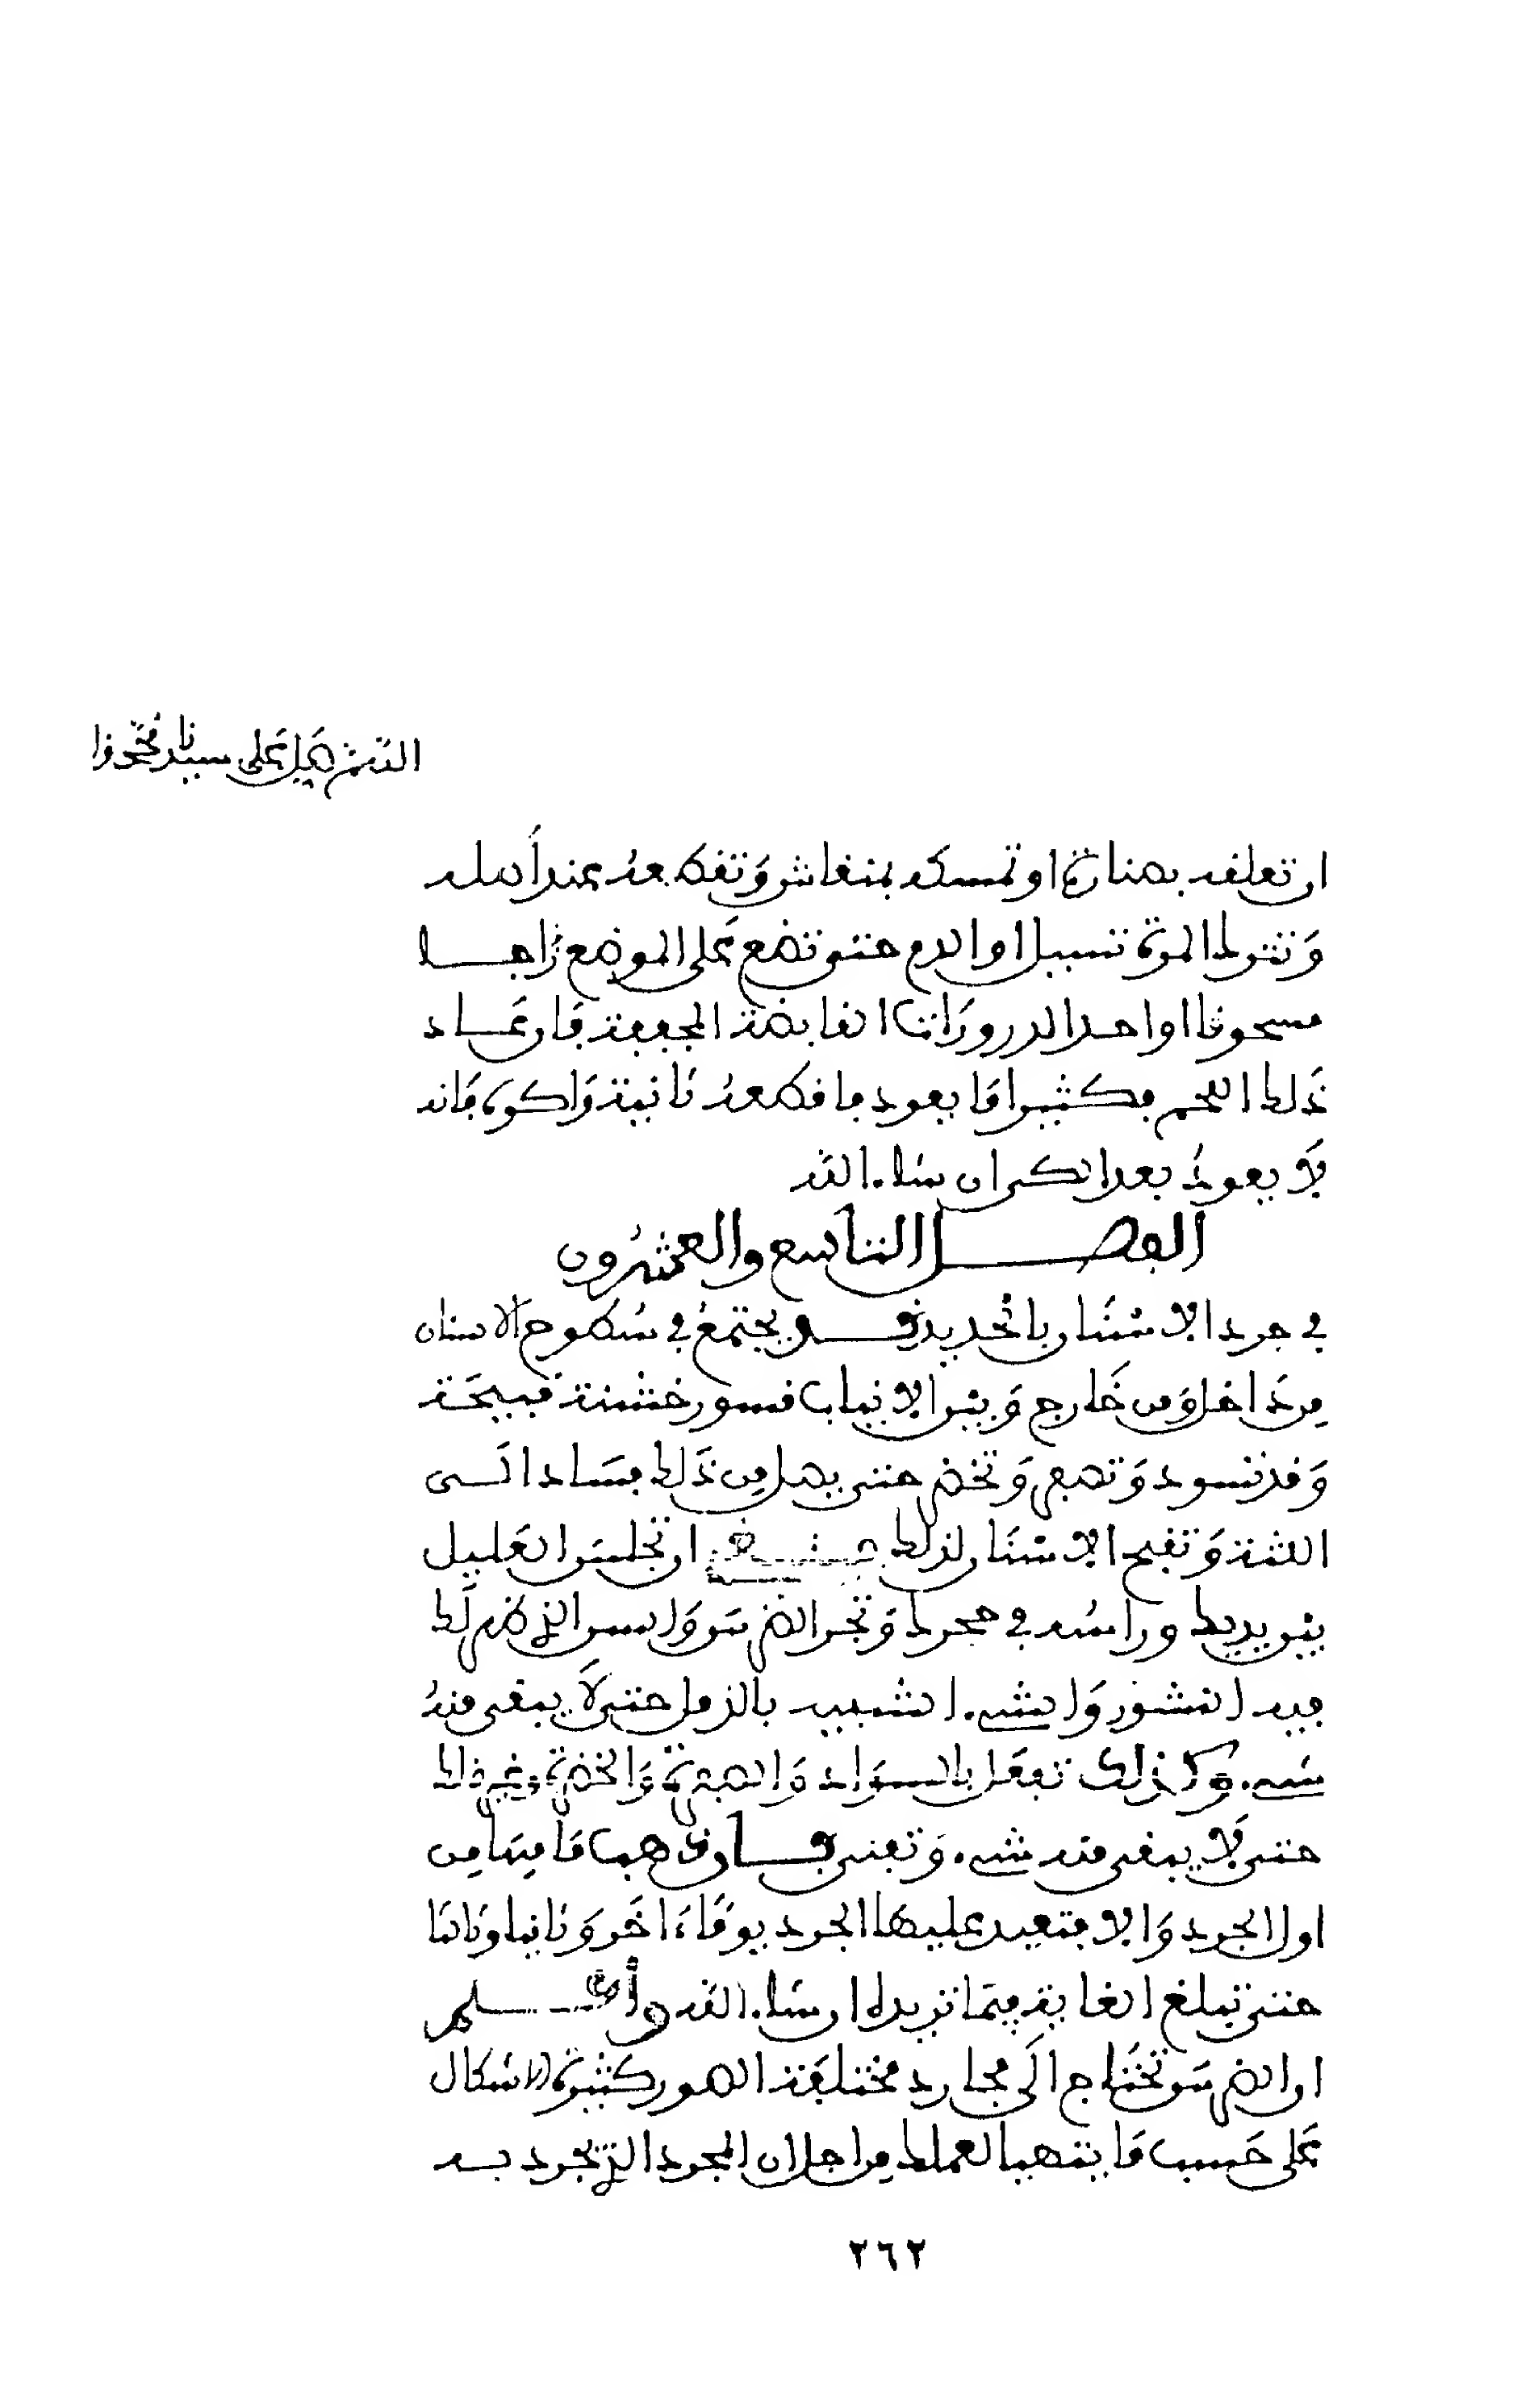 اللهم صل على سيدنا محمد وا
ان تعلقه بصنارة او تمسكه بمنقاش وتقطعه عند أصله
وتترك المدة تسيل او الدم حتى تضع على الموضع زاجا
مسحوقا او احد الذرورات القابضة المجففة فان عاد
ذلك اللحم فكثيرا ما يعود فاقطعه ثانية واكوه فانه
لا يعود بعد الكي ان شاء الله
الفصل التاسع والعشرون
في جرد الاسنان بالحديد قد يجتمع في سطوح الاسنان
من داخل ومن خارج وبين الانياب قشور خشنة قبيحة
وقد تسود وتصفر وتخضر حتى يصل من ذلك فساد الى
اللثة وتقبح الاسنان لذلك فينبغي ان تجلس العليل
بين يديك وراسه في حجرك وتجرد الضرس والسن الذي ظهر لك
فيه القشور والشيء الشبيه بالرمل حتى لا يبقى منه
شيء وكذلك تفعل بالسواد والصفرة والخضرة وغير ذلك
حتى لا يبقى منه شيء وتنقى فان ذهب ما فيها من
اول الجرد والا فتعيد عليها الجرد يوما ءاخر وثانيا وثالثا
حتى تبلغ الغاية فيما تريده ان شاء الله واعلم
ان الضرس تحتاج الى مجارد مختلفة الصور كثيرة الاشكال
على حسب ما يتهيا لعملك من اجل ان المجرد الذي تجرد به
٢٦٢